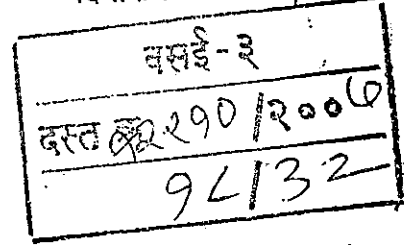 वसई-३
दस्त क्र २२१०/२००७
१८/३२